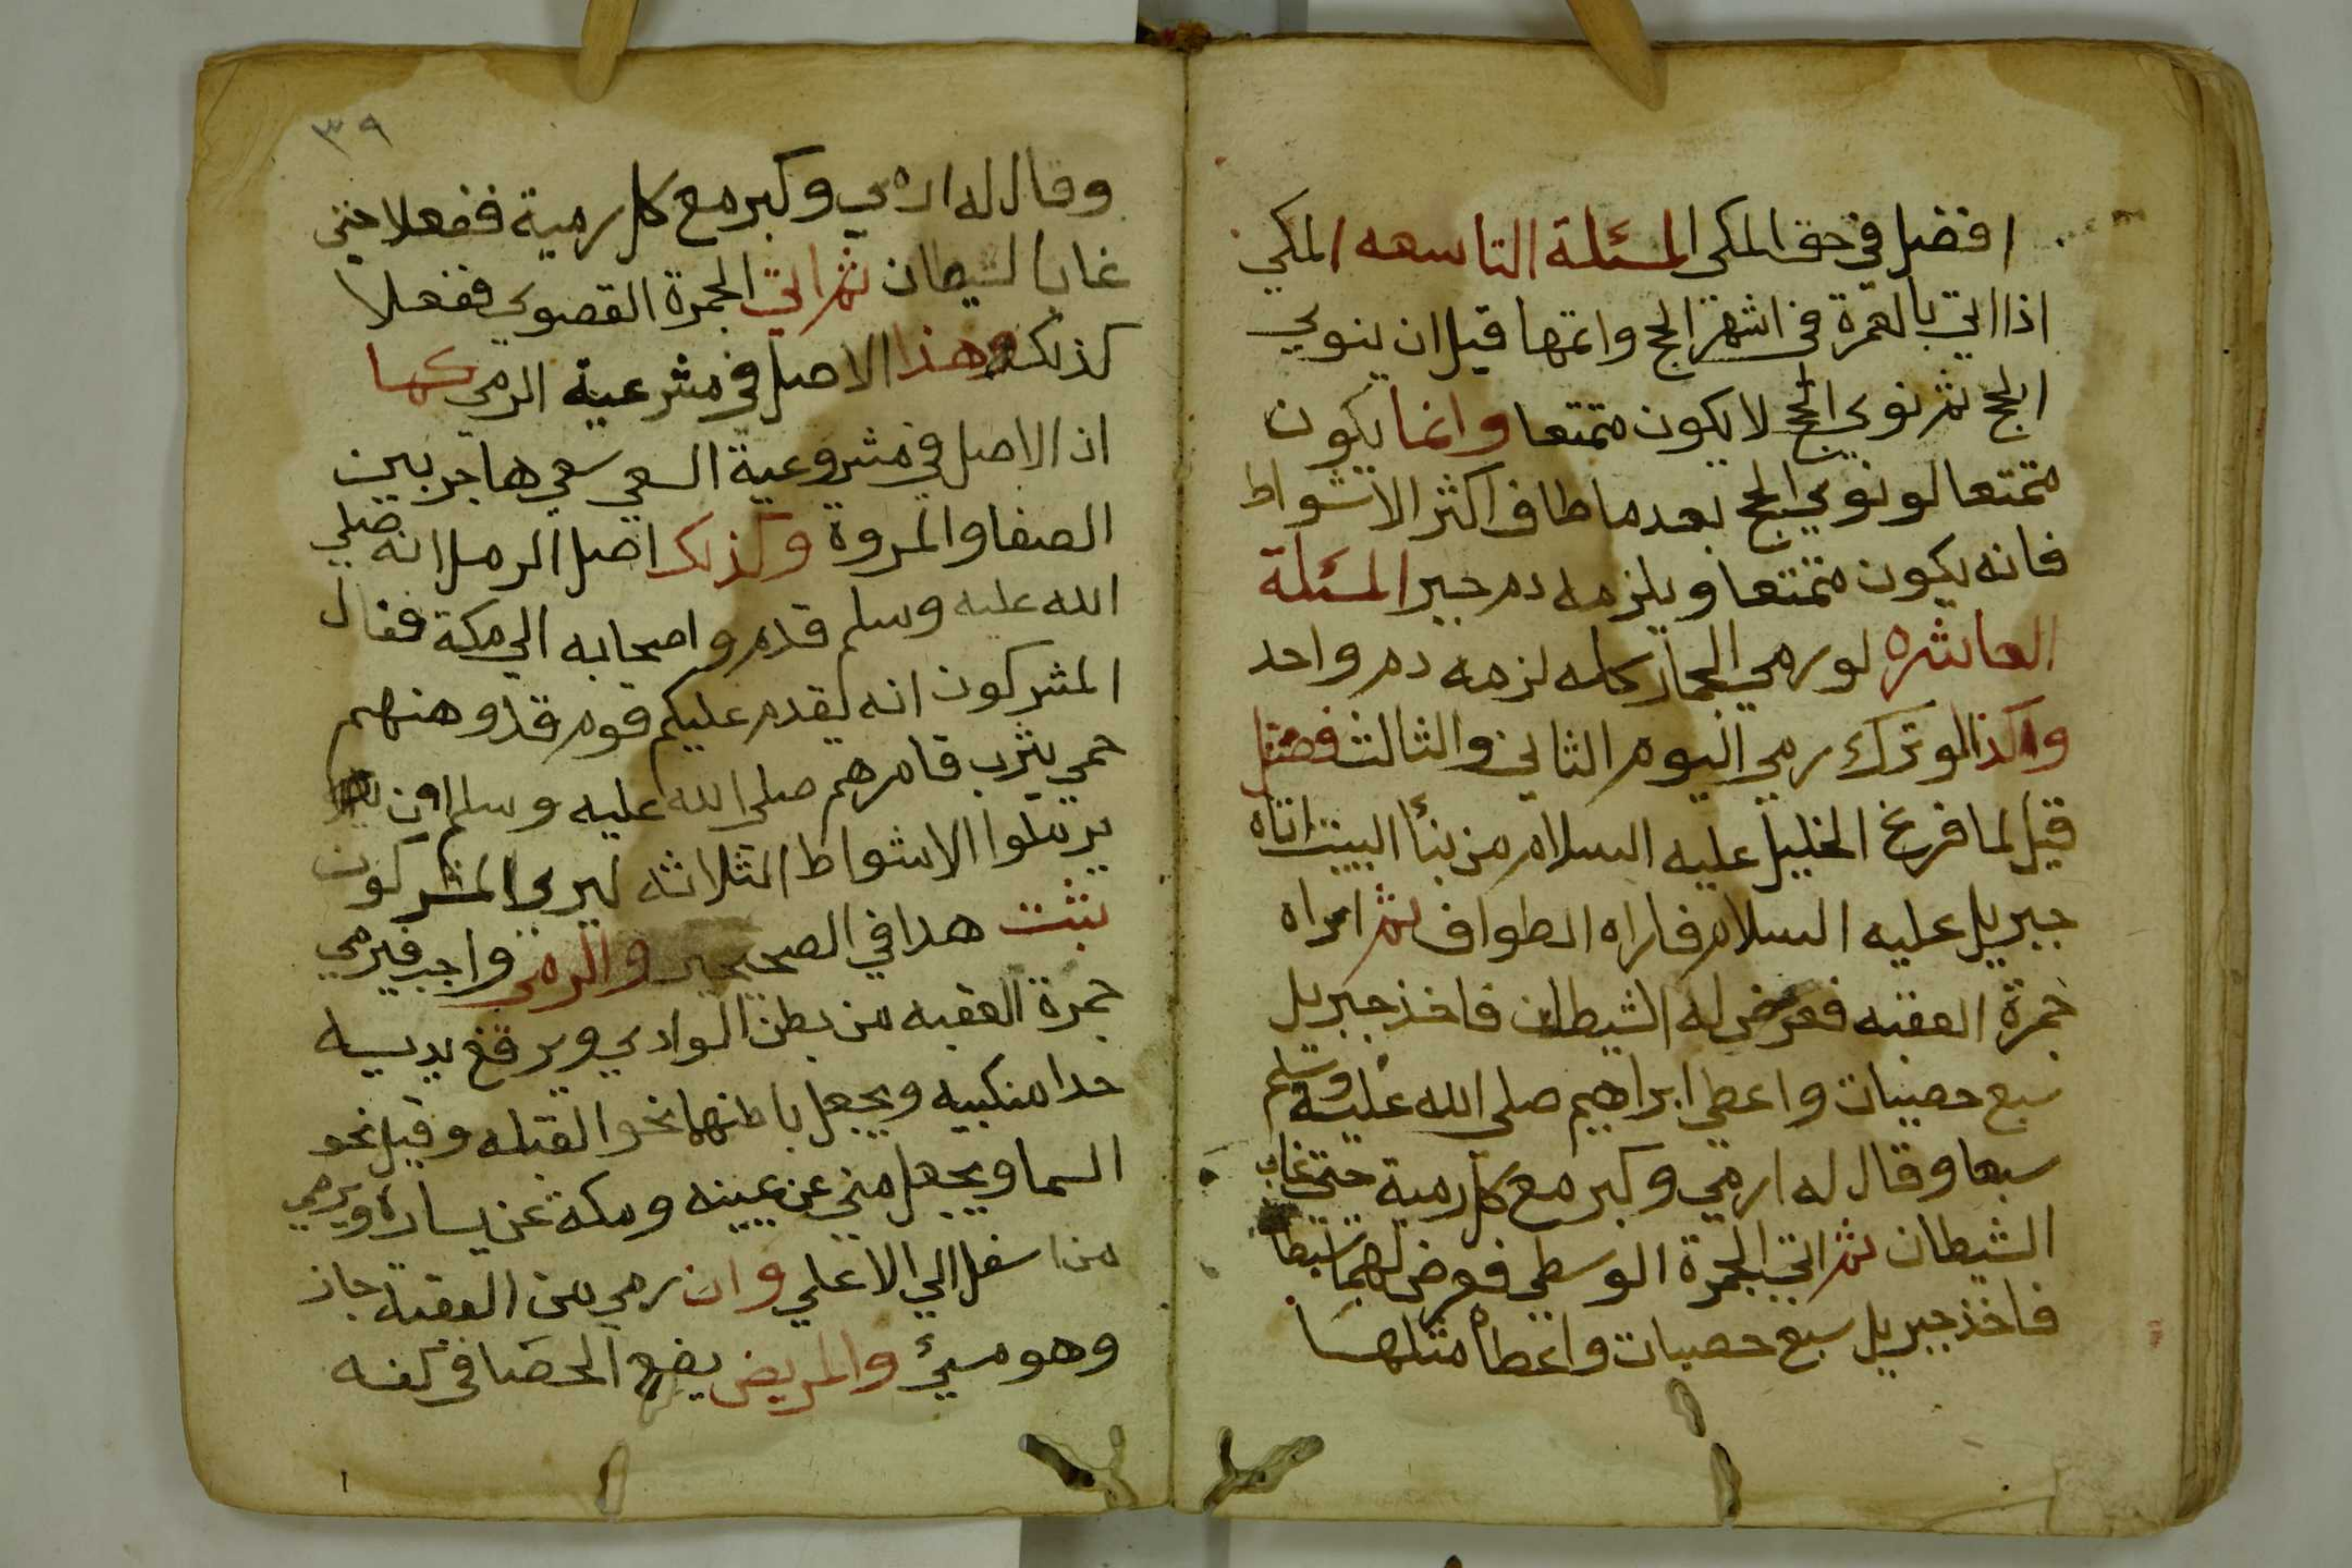 افضل في حق المكي المسئلة التاسعه المكي
اذا اتي بالعمرة في اشهر الحج واتمها قبل ان ينوي
الحج ثم نوي الحج لا يكون متمتعا وانما يكون
متمتعا لو نوي الحج بعد ما طاف اكثر الاشواط
فانه يكون متمتعا ويلزمه دم جبر المسئلة
العاشره لو رمي الجمار كله لزمه دم واحد
وكذا لو ترك رمي اليوم الثاني والثالث فصل
قيل لما فرغ الخليل عليه السلام من بنأ البيت اتاه
جبريل عليه السلام فاراه الطواف ثم اراه
جمرة العقبه فعرض له الشيطان فاخذ جبريل
سبع حصيات واعطي ابراهيم صلي الله عليه وسلم
سبعا وقال له ارمي وكبر مع كل رمية حتي غاب
الشيطان ثم اتي الجمرة الوسطي فعرض لهما
فاخذ جبريل سبع حصيات واعطاه مثلها
٣٩
وقال له ارمي وكبر مع كل رمية ففعلا حتي
غاب الشيطان ثم اتي الجمرة القصوي ففعلا
كذلك وهذا الاصل في مشرعية الرمي كما
اذ الاصل في مشروعية السعي سعي هاجر بين
الصفا والمروة وكذلك اصل الرمل انه صلي
الله عليه وسلم قدم واصحابه الي مكة فقال
المشركون انه يقدم عليكم قوم قد وهنهم
حمي يثرب فامرهم صلي الله عليه وسلم ان
يرملوا الاشواط الثلاثه ليري المشركون
ثبت هدا في الصحيحين والرمي واجب فيرمي
جمرة العقبه من بطن الوادي ويرفع يديه
حدا منكبيه ويجعل باطنهما نحو القبله وقيل نحو
السما ويجعل مني عن يمينه ومكة عن يساره ويرمي
من اسفل الي الاعلي وان رمي من العقبة جاز
وهو مسئ والمريض يضع الحصا في كفه